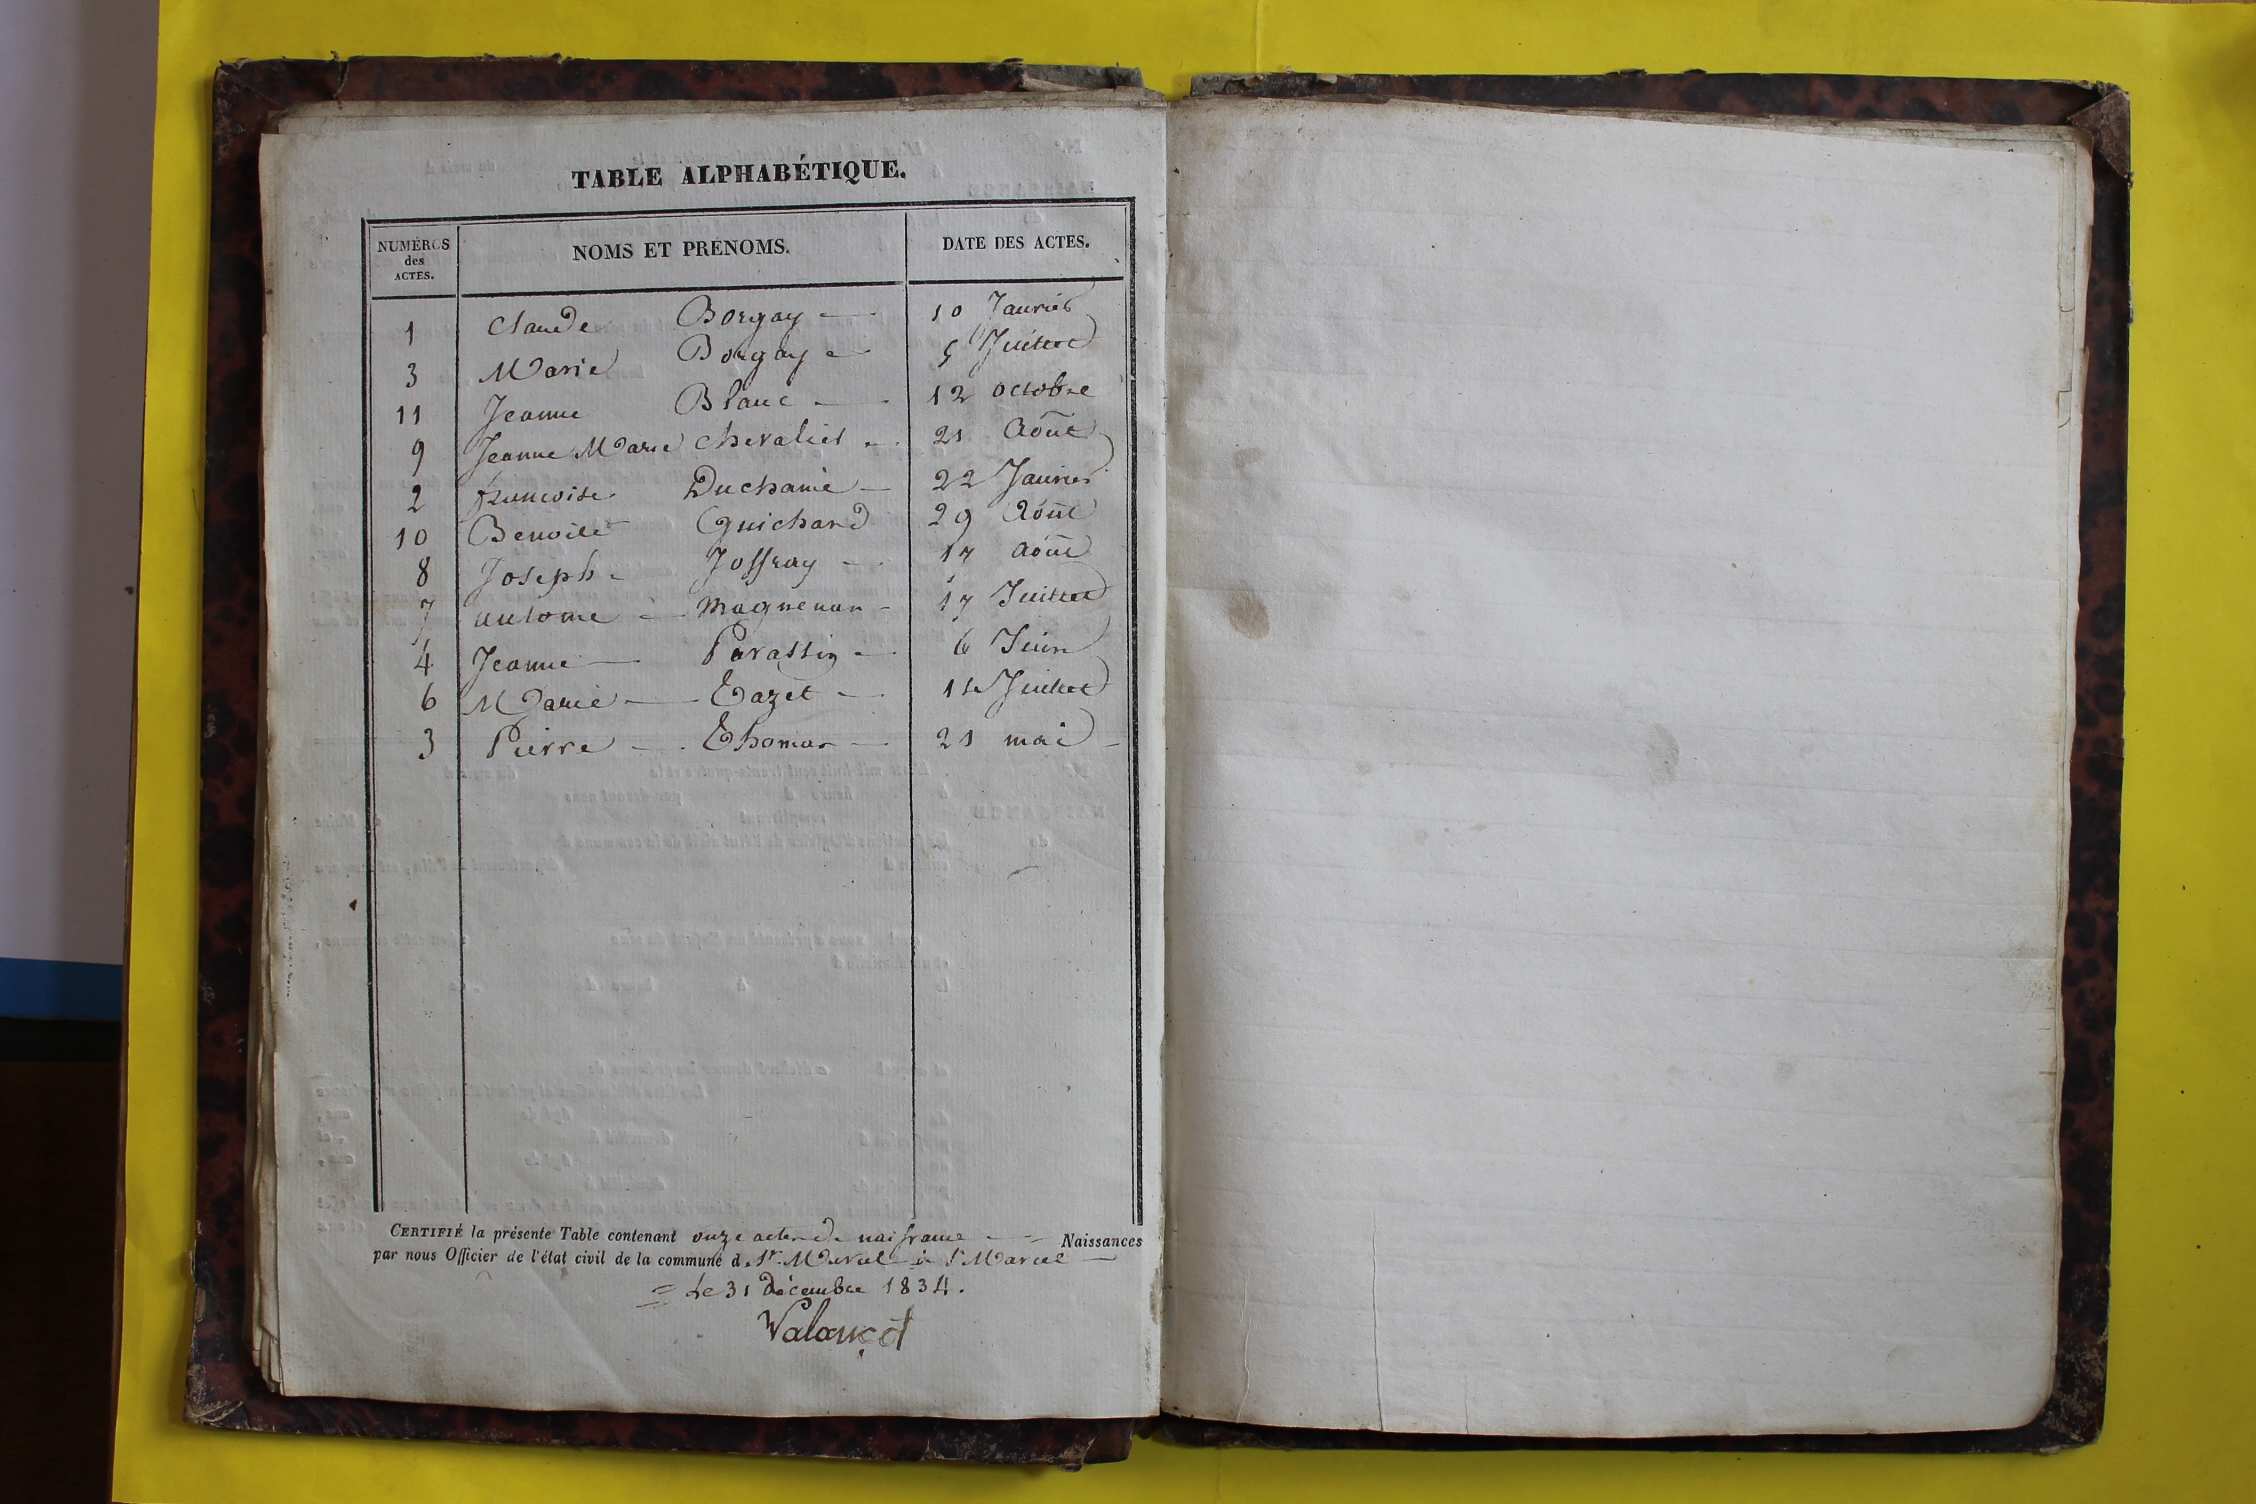 TABLE ALPHABÉTIQUE.
NUMÉROS des ACTES. NOMS ET PRÉNOMS. DATE DES ACTES.
1 Claude Borgay — 10 Janvier
3 Marie Borgay — 5 Juillet
11 Jeanne Blanc — 12 octobre
9 Jeanne Marie Chevalier — 21 Août
2 françoise Duchanie — 22 Janvier
10 Benoite Guichard 29 Août
8 Joseph — Joffray — 17 août
7 antoine — Magnenan — 17 Juillet
4 Jeanne — Parassin — 6 Juin
6 Marie — Tazet — Juillet
3 Pierre — Thomas — 21 mai —
CERTIFIÉ la présente Table contenant onze actes de naissance — Naissances
par nous Officier de l'état civil de la commune d St Marcel à St Marcel —
= Le 31 Décembre 1834.
Valançot